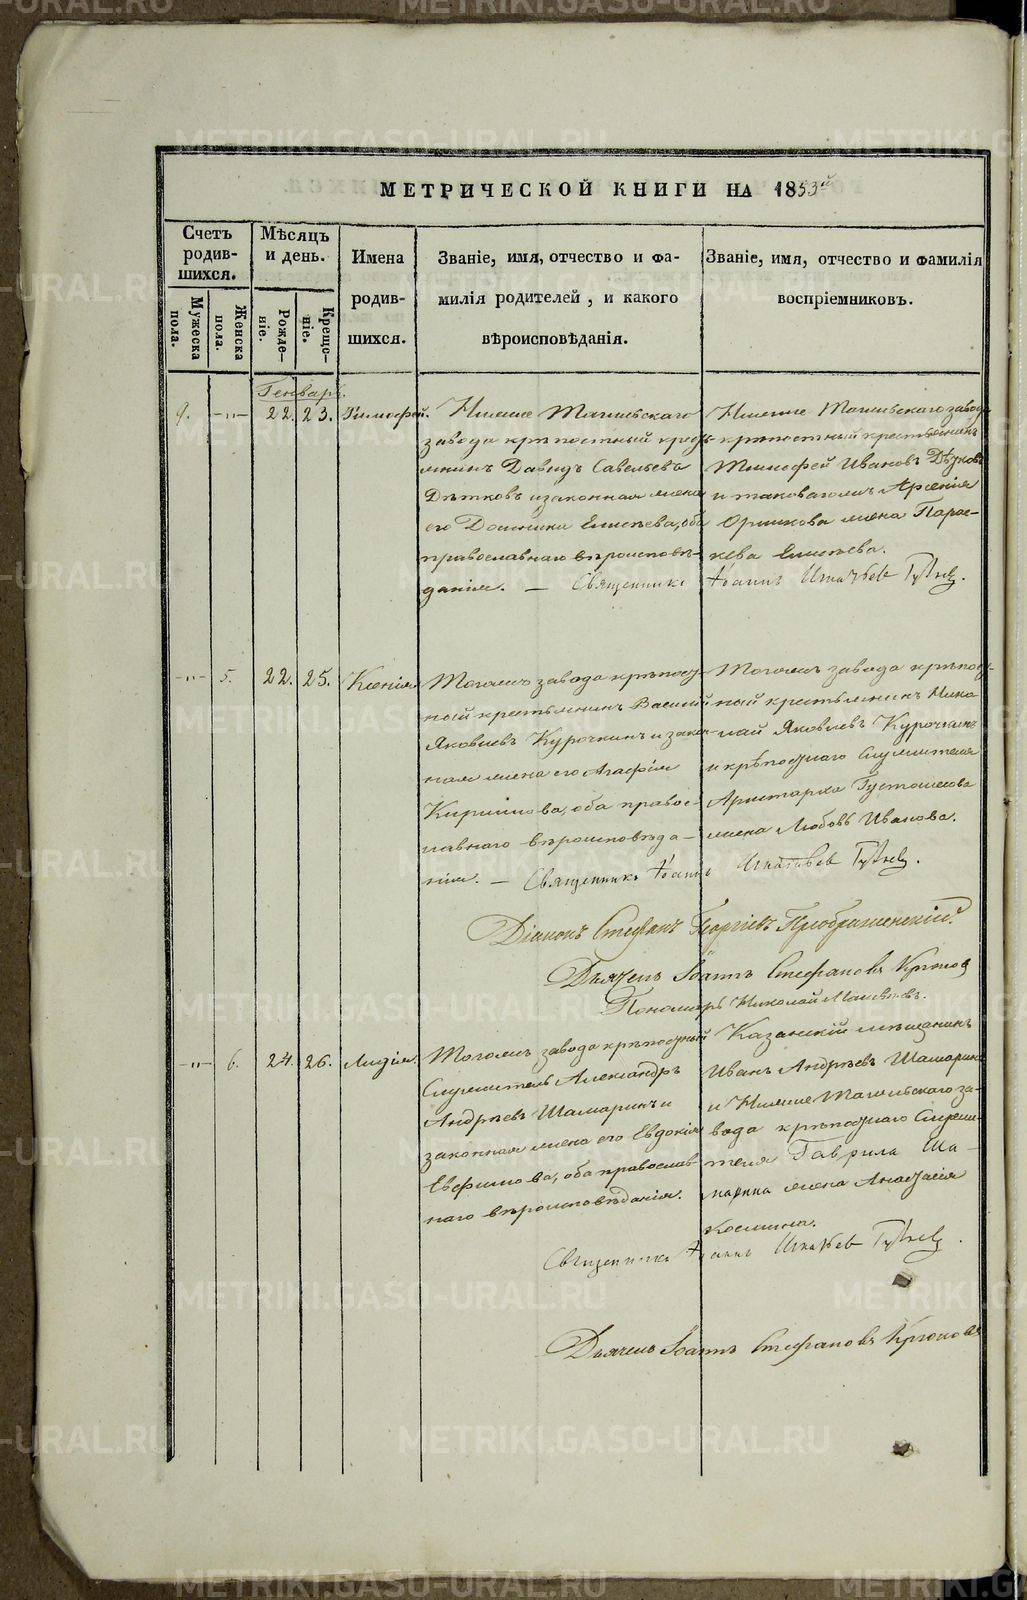 МЕТРИЧЕСКОЙ КНИГИ НА 1853й
Счетъ родив-шихся.
Мѣсяцъ и день.
Имена родив-шихся.
Званіе, имя, отчество и фа-
милія родителей, и какого
вѣроисповѣданія.
Званіе, имя, отчество и фамилія
воспріемниковъ.
Мужеска пола.
Женска пола.
Рожде-ніе.
Креще-ніе.
Генварь.
9. -„- 22. 23. Тимофей.
Нижне Тагильскаго
завода крѣпостный кресть-
янинъ Давидъ Савельевъ
и законная жена
его Елисѣева, оба
православнаго вѣроисповѣ-
данія. — Священникъ Іоаннъ
Нижне Тагильскаго завода
крѣпостный крестьянинъ
Тимофей Ивановъ
и таковагожъ Арсенія
жена Парас-
кева Елисѣева.
-„- 5. 22. 25. Ксенія
Тогожъ завода крѣпост-
ный крестьянинъ Василій
Яковлевъ Курочкинъ и закон-
ная жена его Агафія
Кирилова, оба правос-
лавнаго вѣроисповѣда-
нія. — Священникъ Іоаннъ
Тогожъ завода крѣпост-
ный крестьянинъ Нико-
лай Яковлевъ Курочкинъ
и крѣпостнаго служителя
Аристарха
жена Любовь Иванова.
Діаконъ Стефанъ Георгіевъ Преображенскій.
Дьячекъ Іоаннъ Стефановъ Крюковъ
Пономарь Николай
-„- 6. 24. 26. Лидія.
Тогожъ завода крѣпостный
служитель Александръ
Андрѣевъ Шамаринъ и
законная жена его Евдокія
Евфимова, оба православ-
наго вѣроисповѣданія.
Казанскій мѣщанинъ
Иванъ Андрѣевъ Шамаринъ
и Нижне Тагильскаго за-
вода крѣпостнаго служи-
теля Гаврила Ша-
марина жена Анастасія
Космина.
Священникъ Іоаннъ
Дьячекъ Іоаннъ Стефановъ Крюковъ
METRIKI.GASO-URAL.RU